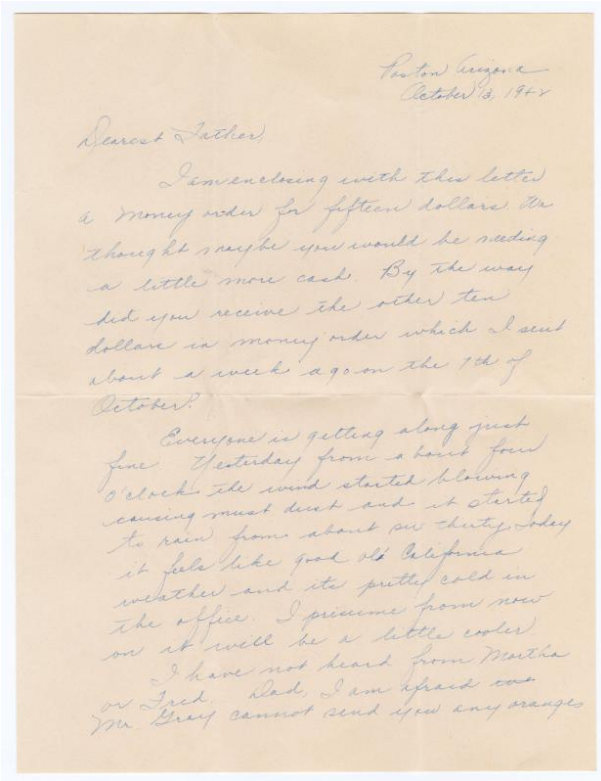 Poston Arizona
October 13, 1942
Dearest Father,
I am enclosing with this letter
a money order for fifteen dollars. We
thought maybe you would be needing
a little more cash. By the way
did you receive the other ten
dollars in money order which I sent
about a week ago on the 7th of
October?
Everyone is getting along just
fine. Yesterday from about four
o'clock the wind started blowing
causing must dust and it started
to rain from about six thirty. Today
it feels like good old California
weather and its pretty cold in
the office. I presume from now
on it will be a little cooler
I have not heard from Martha
or Fred. Dad, I am afraid
Mr. Gray cannot send you any oranges